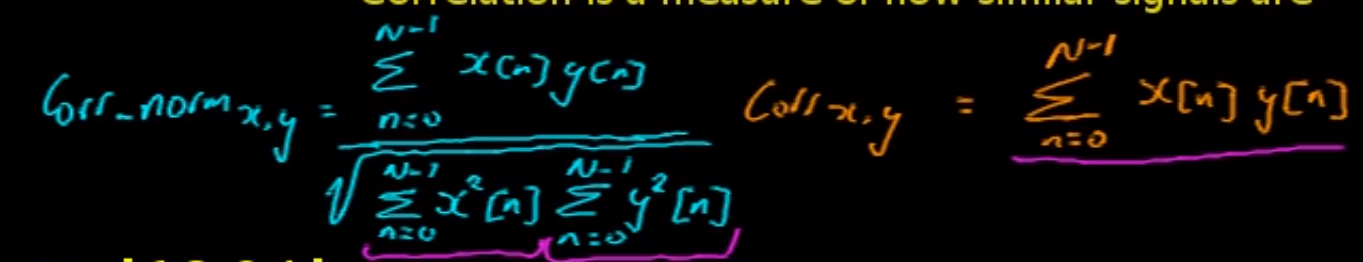 Correlation is a measure of how similar signals are
Corr_norm x,y = N-1 Σ n=0 x[n] y[n] / √ N-1 Σ n=0 x²[n] N-1 Σ n=0 y²[n]
Corr x,y = N-1 Σ n=0 x[n] y[n]